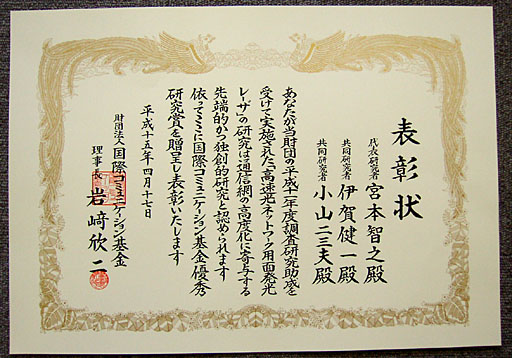 表彰状
代表研究者 宮本智之殿
共同研究者 伊賀健一殿
共同研究者 小山二三夫殿
あなたが当財団の平成十一年度調査研究助成を
受けて実施された「高速光ネットワーク用面発光
レーザ」の研究は通信網の高度化に寄与する
先端的かつ独創的研究と認められます
依ってここに国際コミュニケーション基金優秀
研究賞を贈呈し表彰いたします
平成十五年四月十七日
財団法人 国際コミュニケーション基金
理事長 岩﨑欣二